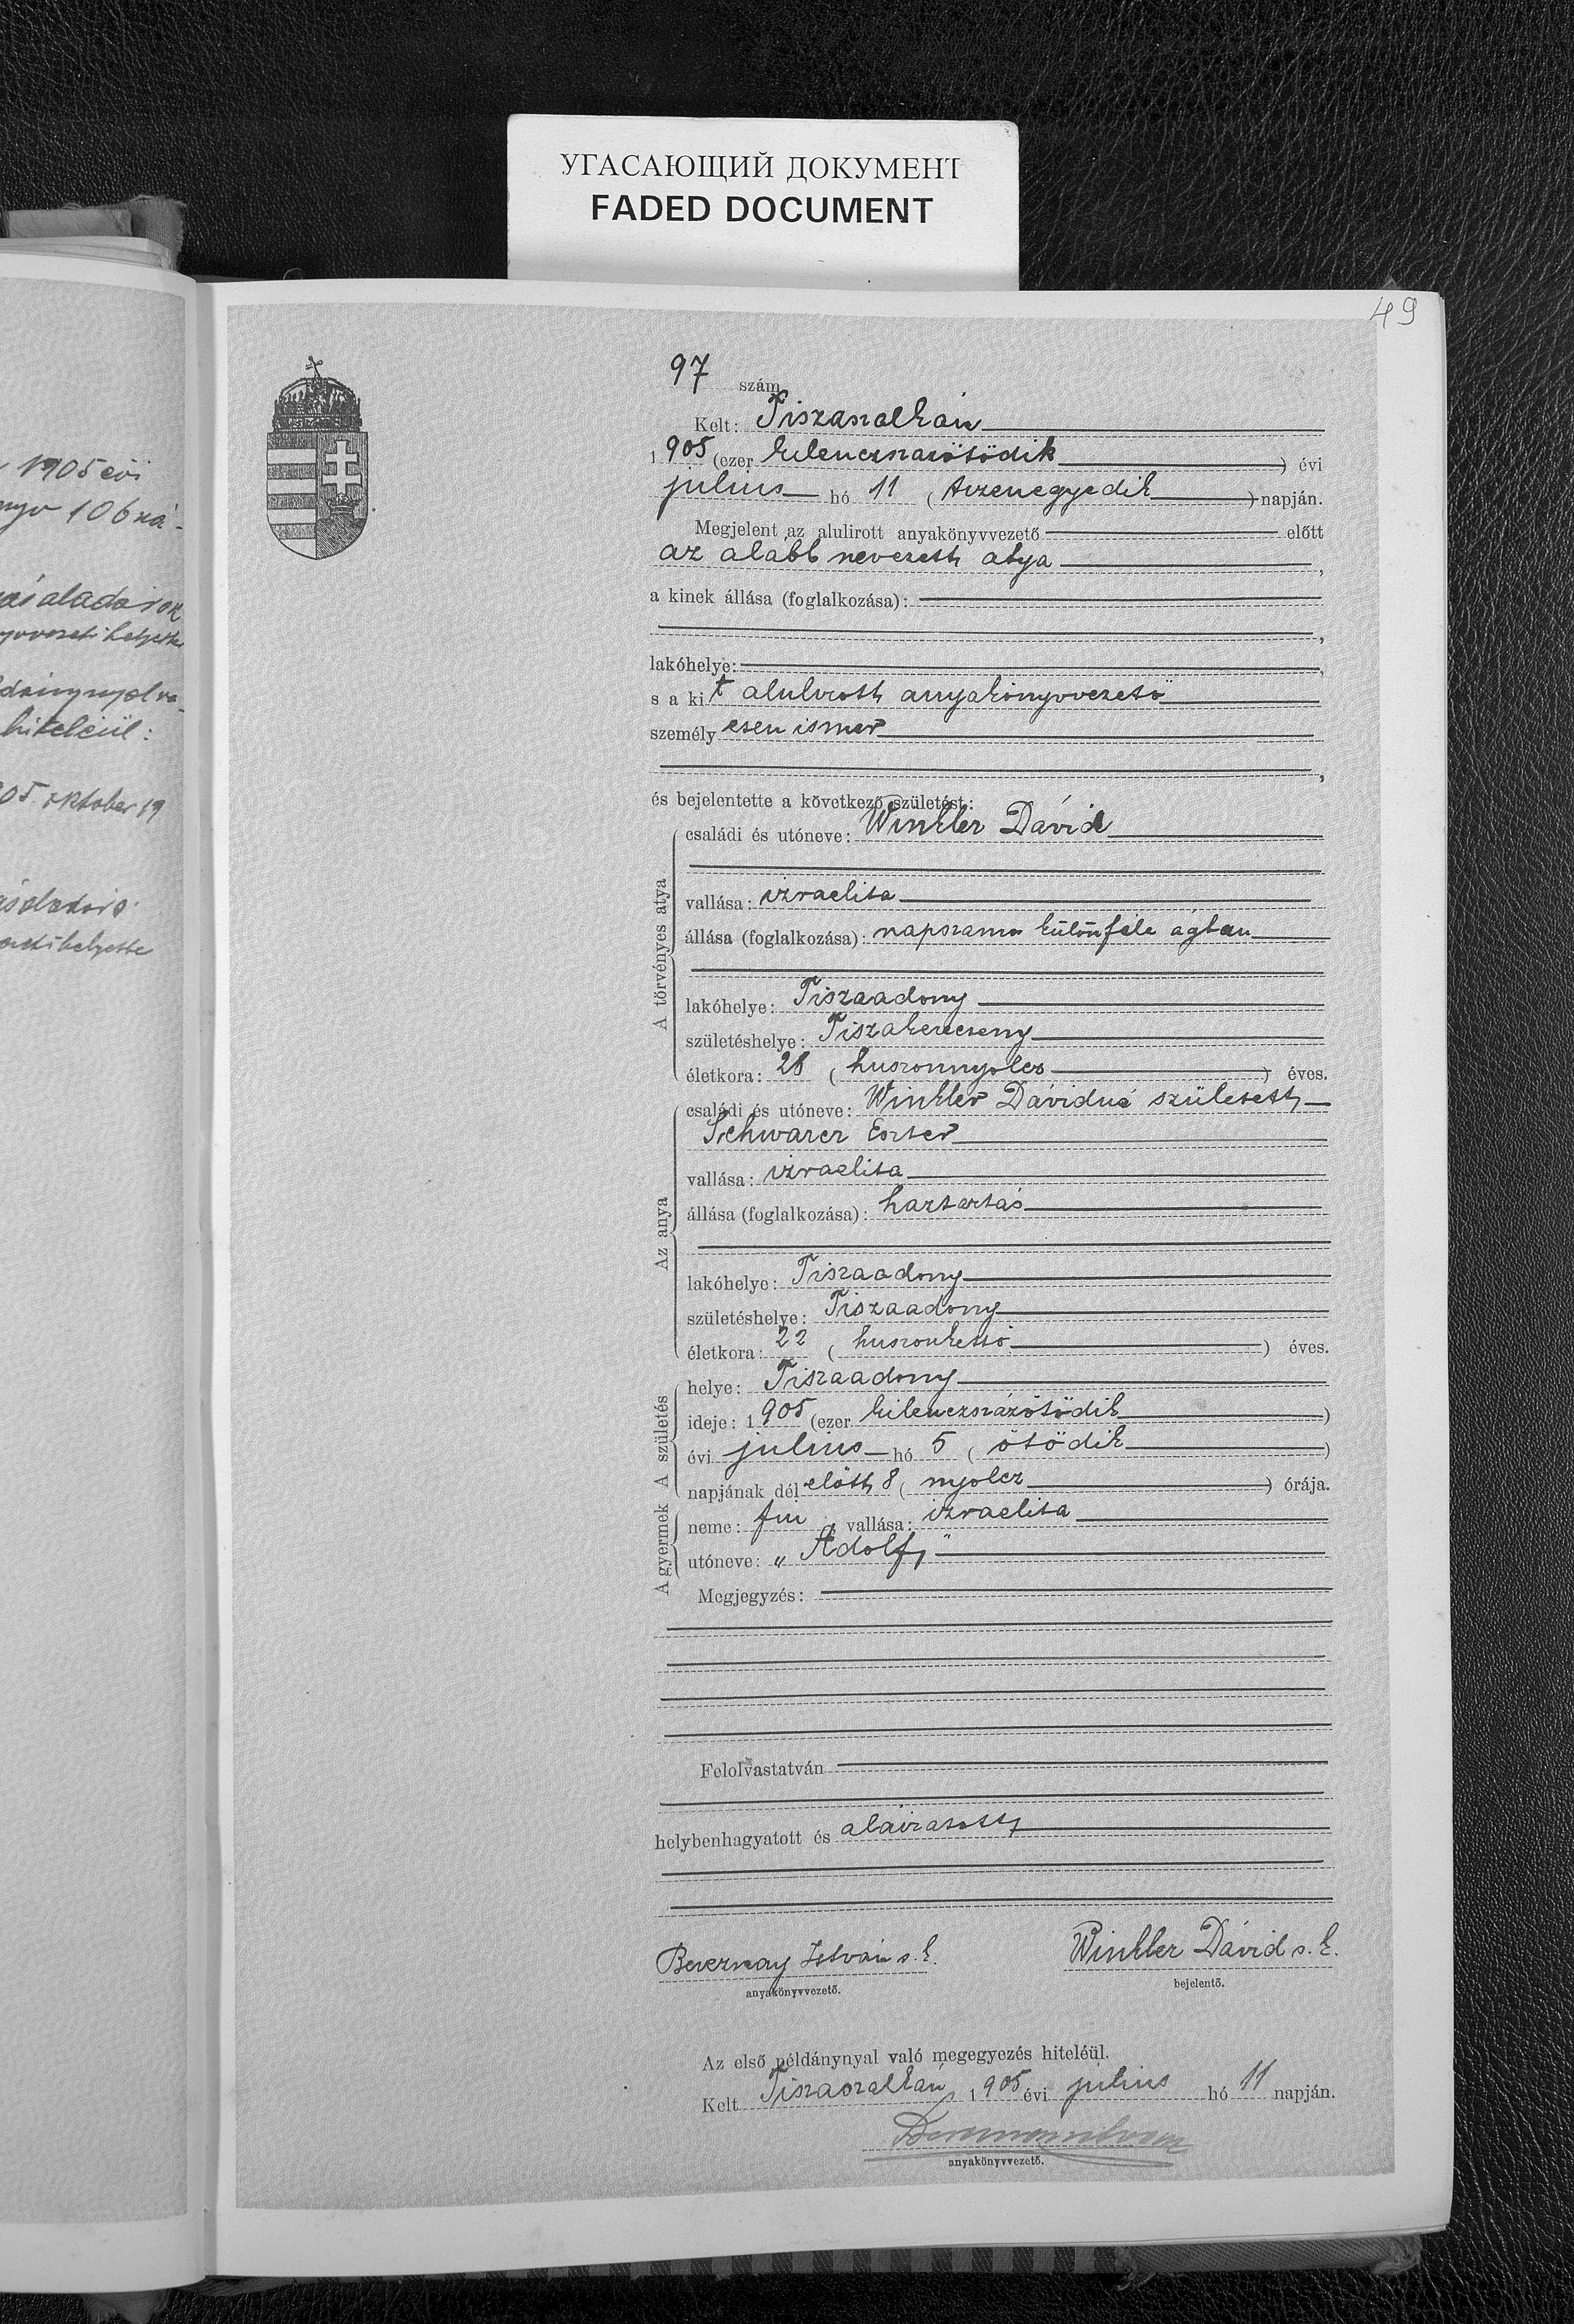 УГАСАЮЩИЙ ДОКУМЕНТ
FADED DOCUMENT
49
1905 évi
106
hiteléül:
oktober 19
97 szám
Kelt: Tiszaszalkán
1905 (ezer kilenczszázötödik) évi
julius hó 11 (tizenegyedik) napján.
Megjelent az alulirott anyakönyvvezető előtt
az alább nevezett atya,
a kinek állása (foglalkozása):
lakóhelye:
s a kit alulirott anyakönyvvezető
személyesen ismer
és bejelentette a következő születést:
A törvényes atya
családi és utóneve: Winkler Dávid
vallása: izraelita
állása (foglalkozása): napszamos különféle ágban
lakóhelye: Tiszaadony
születéshelye: Tiszakerecseny
életkora: 28 (huszonnyolcz) éves.
Az anya
családi és utóneve: Winkler Dávidné született
Schwarcz Eszter
vallása: izraelita
állása (foglalkozása): háztartás
lakóhelye: Tiszaadony
születéshelye: Tiszaadony
életkora: 22 (huszonkettő) éves.
A születés
helye: Tiszaadony
ideje: 1905 (ezer kilenczszázötödik)
évi julius hó 5 (ötödik)
napjának délelőtt 8 (nyolcz) órája.
A gyermek
neme: fiu, vallása: izraelita
utóneve: „Adolf"
Megjegyzés:
Felolvastatván
helybenhagyatott és aláiratott
István s. k. Winkler Dávid s. k.
anyakönyvvezető. bejelentő.
Az első példánynyal való megegyezés hiteléül.
Kelt Tiszaszalkán, 1905 évi julius hó 11 napján.
anyakönyvvezető.